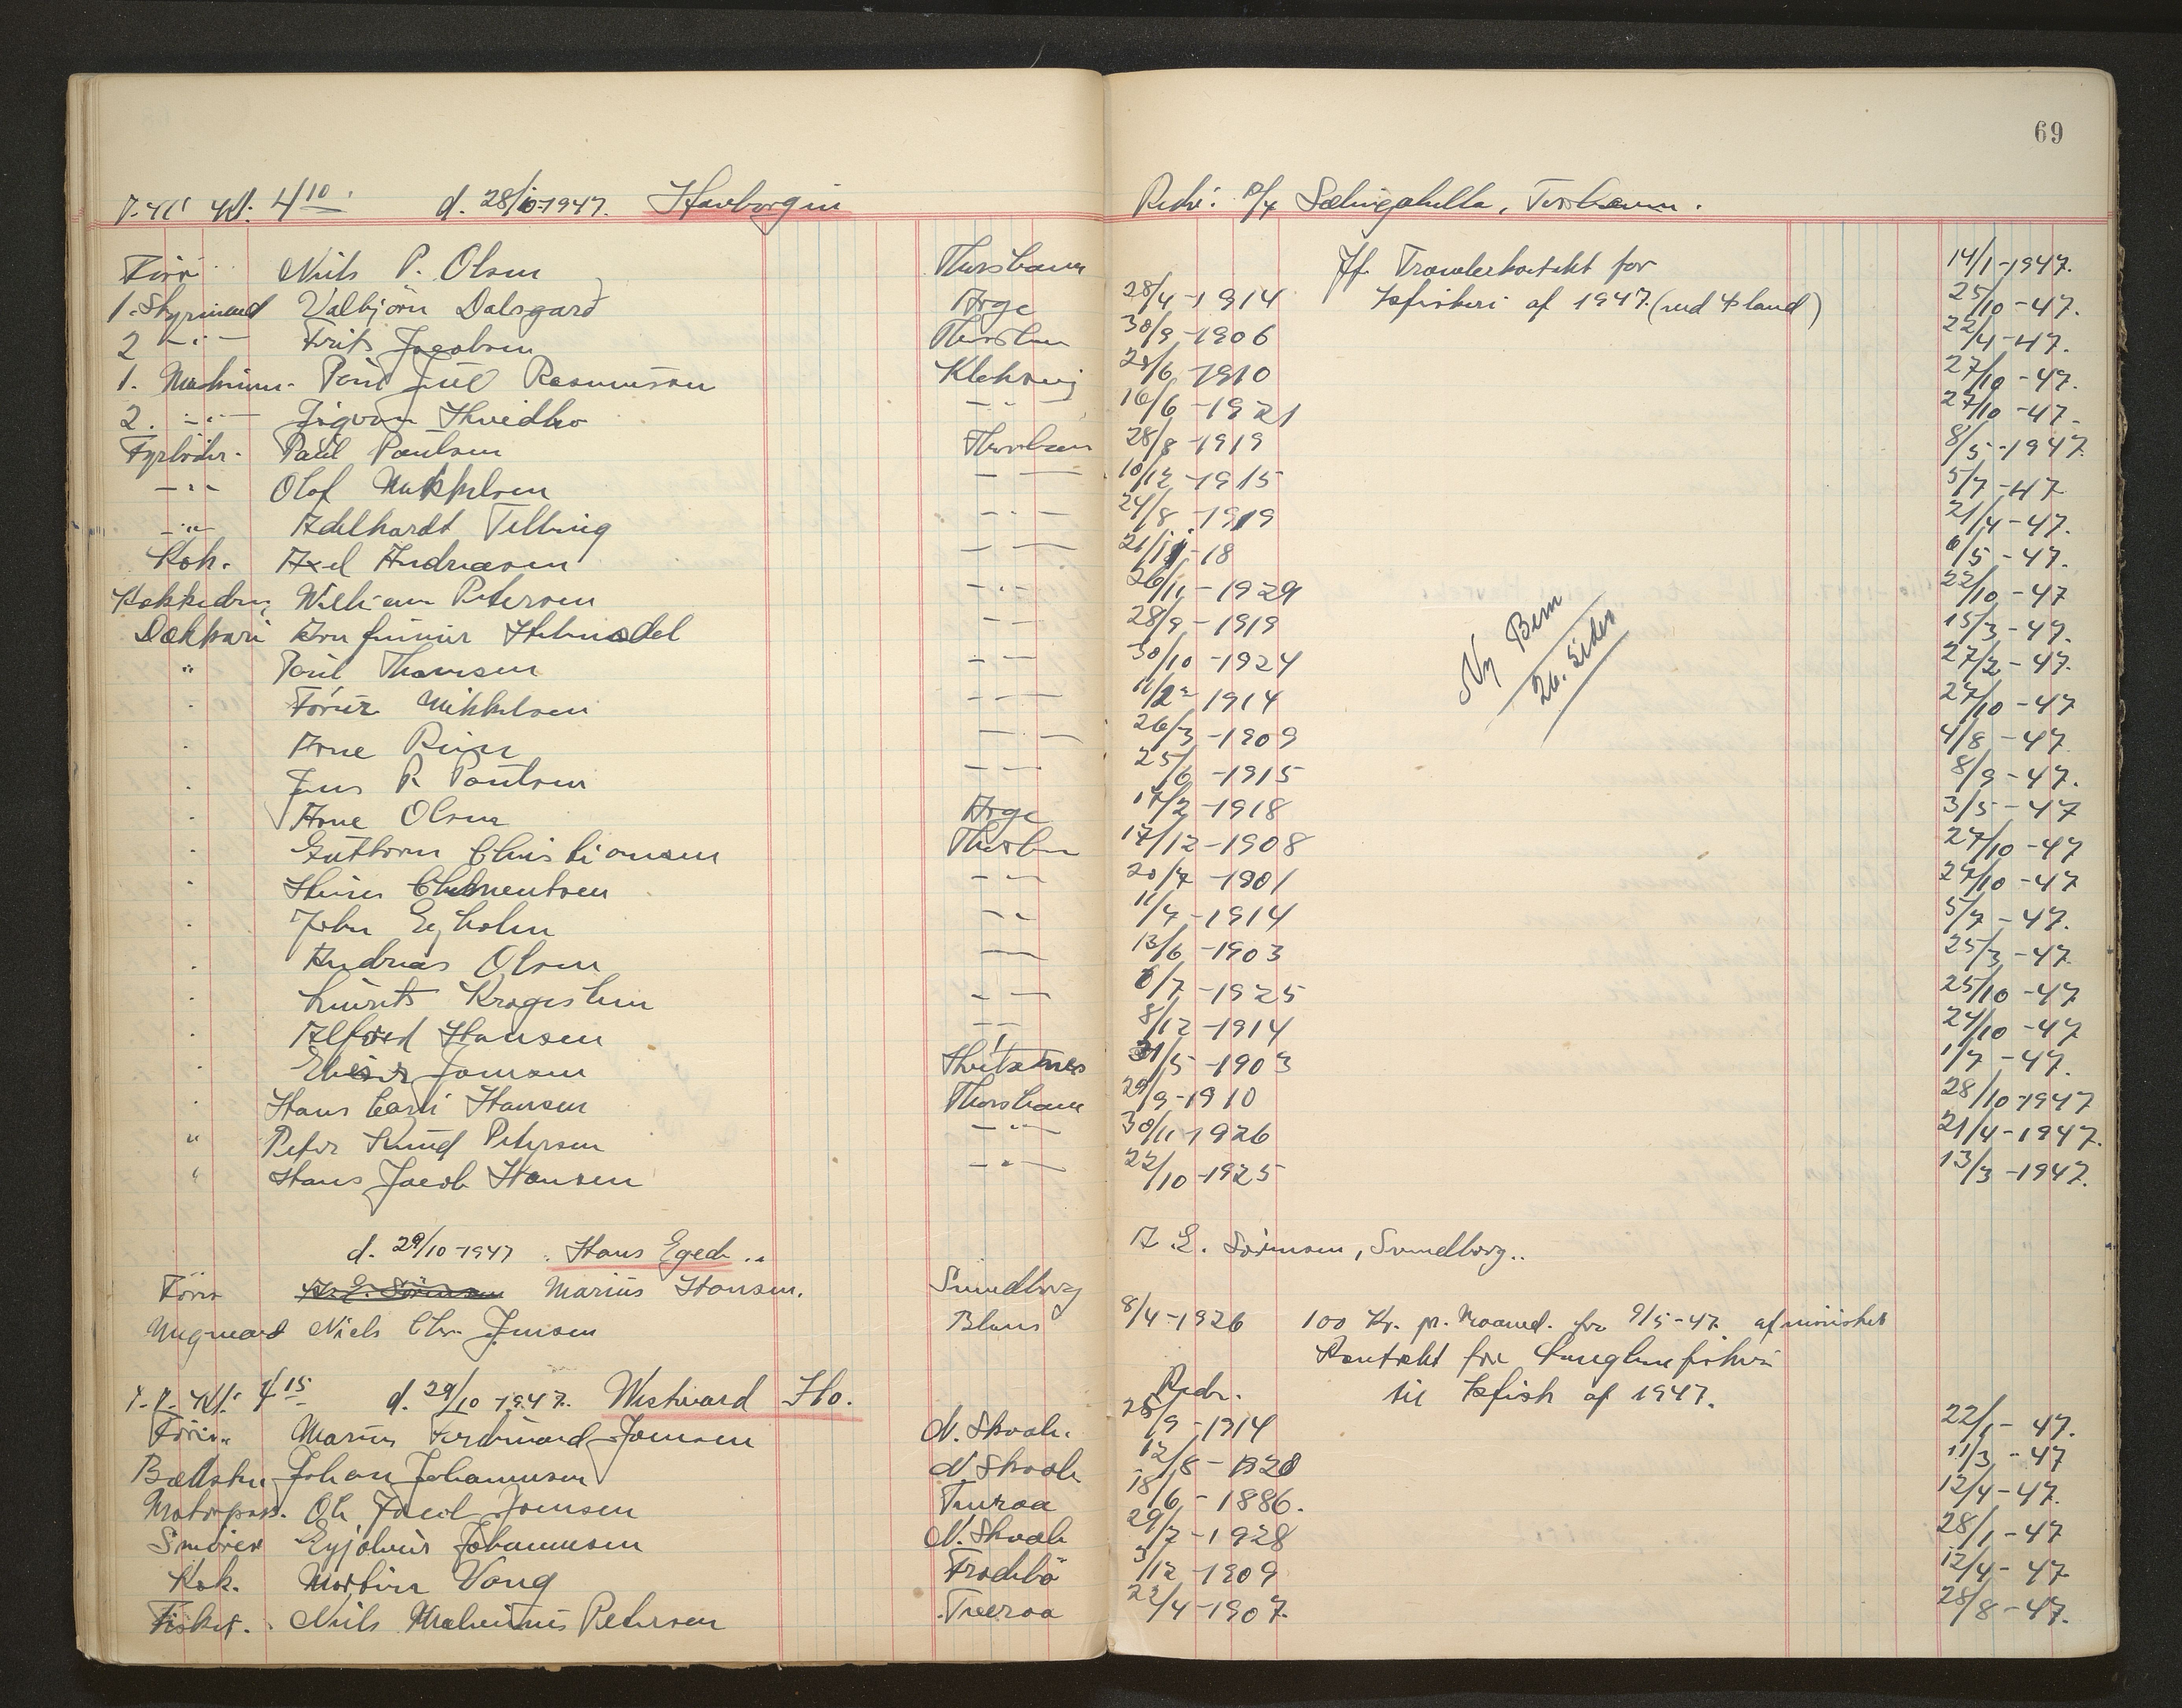 69
Kl. 4 10 d. 28/10-1947. Havborgin Rederi: P/F Sælingahella, Torshavn.
Förer Niels P. Olsen Thorshavn Jf. Trawlerkontrakt for 14/1-1947.
1. Styrmand Valbjörn Dalsgard Arge 28/4-1914 Isfiskeri af 1947. (ved Island) 25/10-47.
2 -"- Frits Jacobsen Thorshavn 30/9-1906 22/4-47.
1. Maskinm. Poul Juel Rasmussen Klaksvig 28/6-1910 27/10-47.
2. -"- 16/6-1921 27/10-47.
Fyrböder. Paul Poulsen Thorshavn 28/8-1919 8/5-1947.
-"- Olaf Mikkelsen - - 10/12-1915 5/7-47
-"- Adelhardt Telling - - 24/8-1919 21/4-47.
Kok. Axel Andreasen - - 21/11-18 6/5-47.
William Petersen - - 26/11-1929 22/10-47
Jon Gunnar Helmsdal - - 28/9-1919 15/3-47.
" Poul Thomsen - - 30/10-1924 27/2-47.
. Mikkelsen - - 11/2-1914 27/10-47
. Arne - - 26/3-1909 4/8-47
. Jens P. Poulsen - - 25/6-1915 8/9-47.
. Arne Olsen Arge 17/2-1918 3/5-47
. Guttorm Christiansen Thorshavn 17/12-1908 27/10-47
. Clementsen - - 20/7-1901 27/10-47
. John Egholm - - 11/7-1914 5/7-47.
. Andreas Olsen - - 13/6-1903 25/3-47.
. Laurits Kragesteen - - 6/7-1925 25/10-47
. Alfred Hansen - - 8/12-1914 24/10-47
. Joensen Hvitanes 31/5-1903 1/7-47.
. Hans Carli Hansen Thorshavn 29/9-1910 28/10-1947
" Peter Knud Petersen - " - 30/11-1926 21/4-1947.
" Hans Jacob Hansen - " - 22/10-1925 13/3-1947.
Ny Bem
26. Sider
d. 29/10-1947 "Hans Egede" A. E. Sörensen, Svendborg.
Förer A. E. Sörensen Marius Hansen. Svendborg
Ungmand Niels Chr. Jensen Blans 8/4-1926 100 Kr. pr. Maaned. fra 9/5-47. afmönstret
Kontrakt for
Kl. 4 15 d. 29/10-1947. Westward Ho. Reder. til Isfisk af 1947.
Förer Marius Ferdinand Joensen N. Skaale. 25/9-1914 22/1-47.
Bedstm Johan Johannesen N. Skaale 12/8-1920 11/3-47
Motorpass. Ole Jacob Joensen Tveraa 18/6-1886. 12/4-47.
Smörer Eyjolvur Johannesen N. Skaale 29/7-1928 28/1-47
Kok. Morten Vang Frodebö 3/12-1909 12/4-47
Fisker. Niels Petersen Tveraa 22/4-1907. 28/8-47.